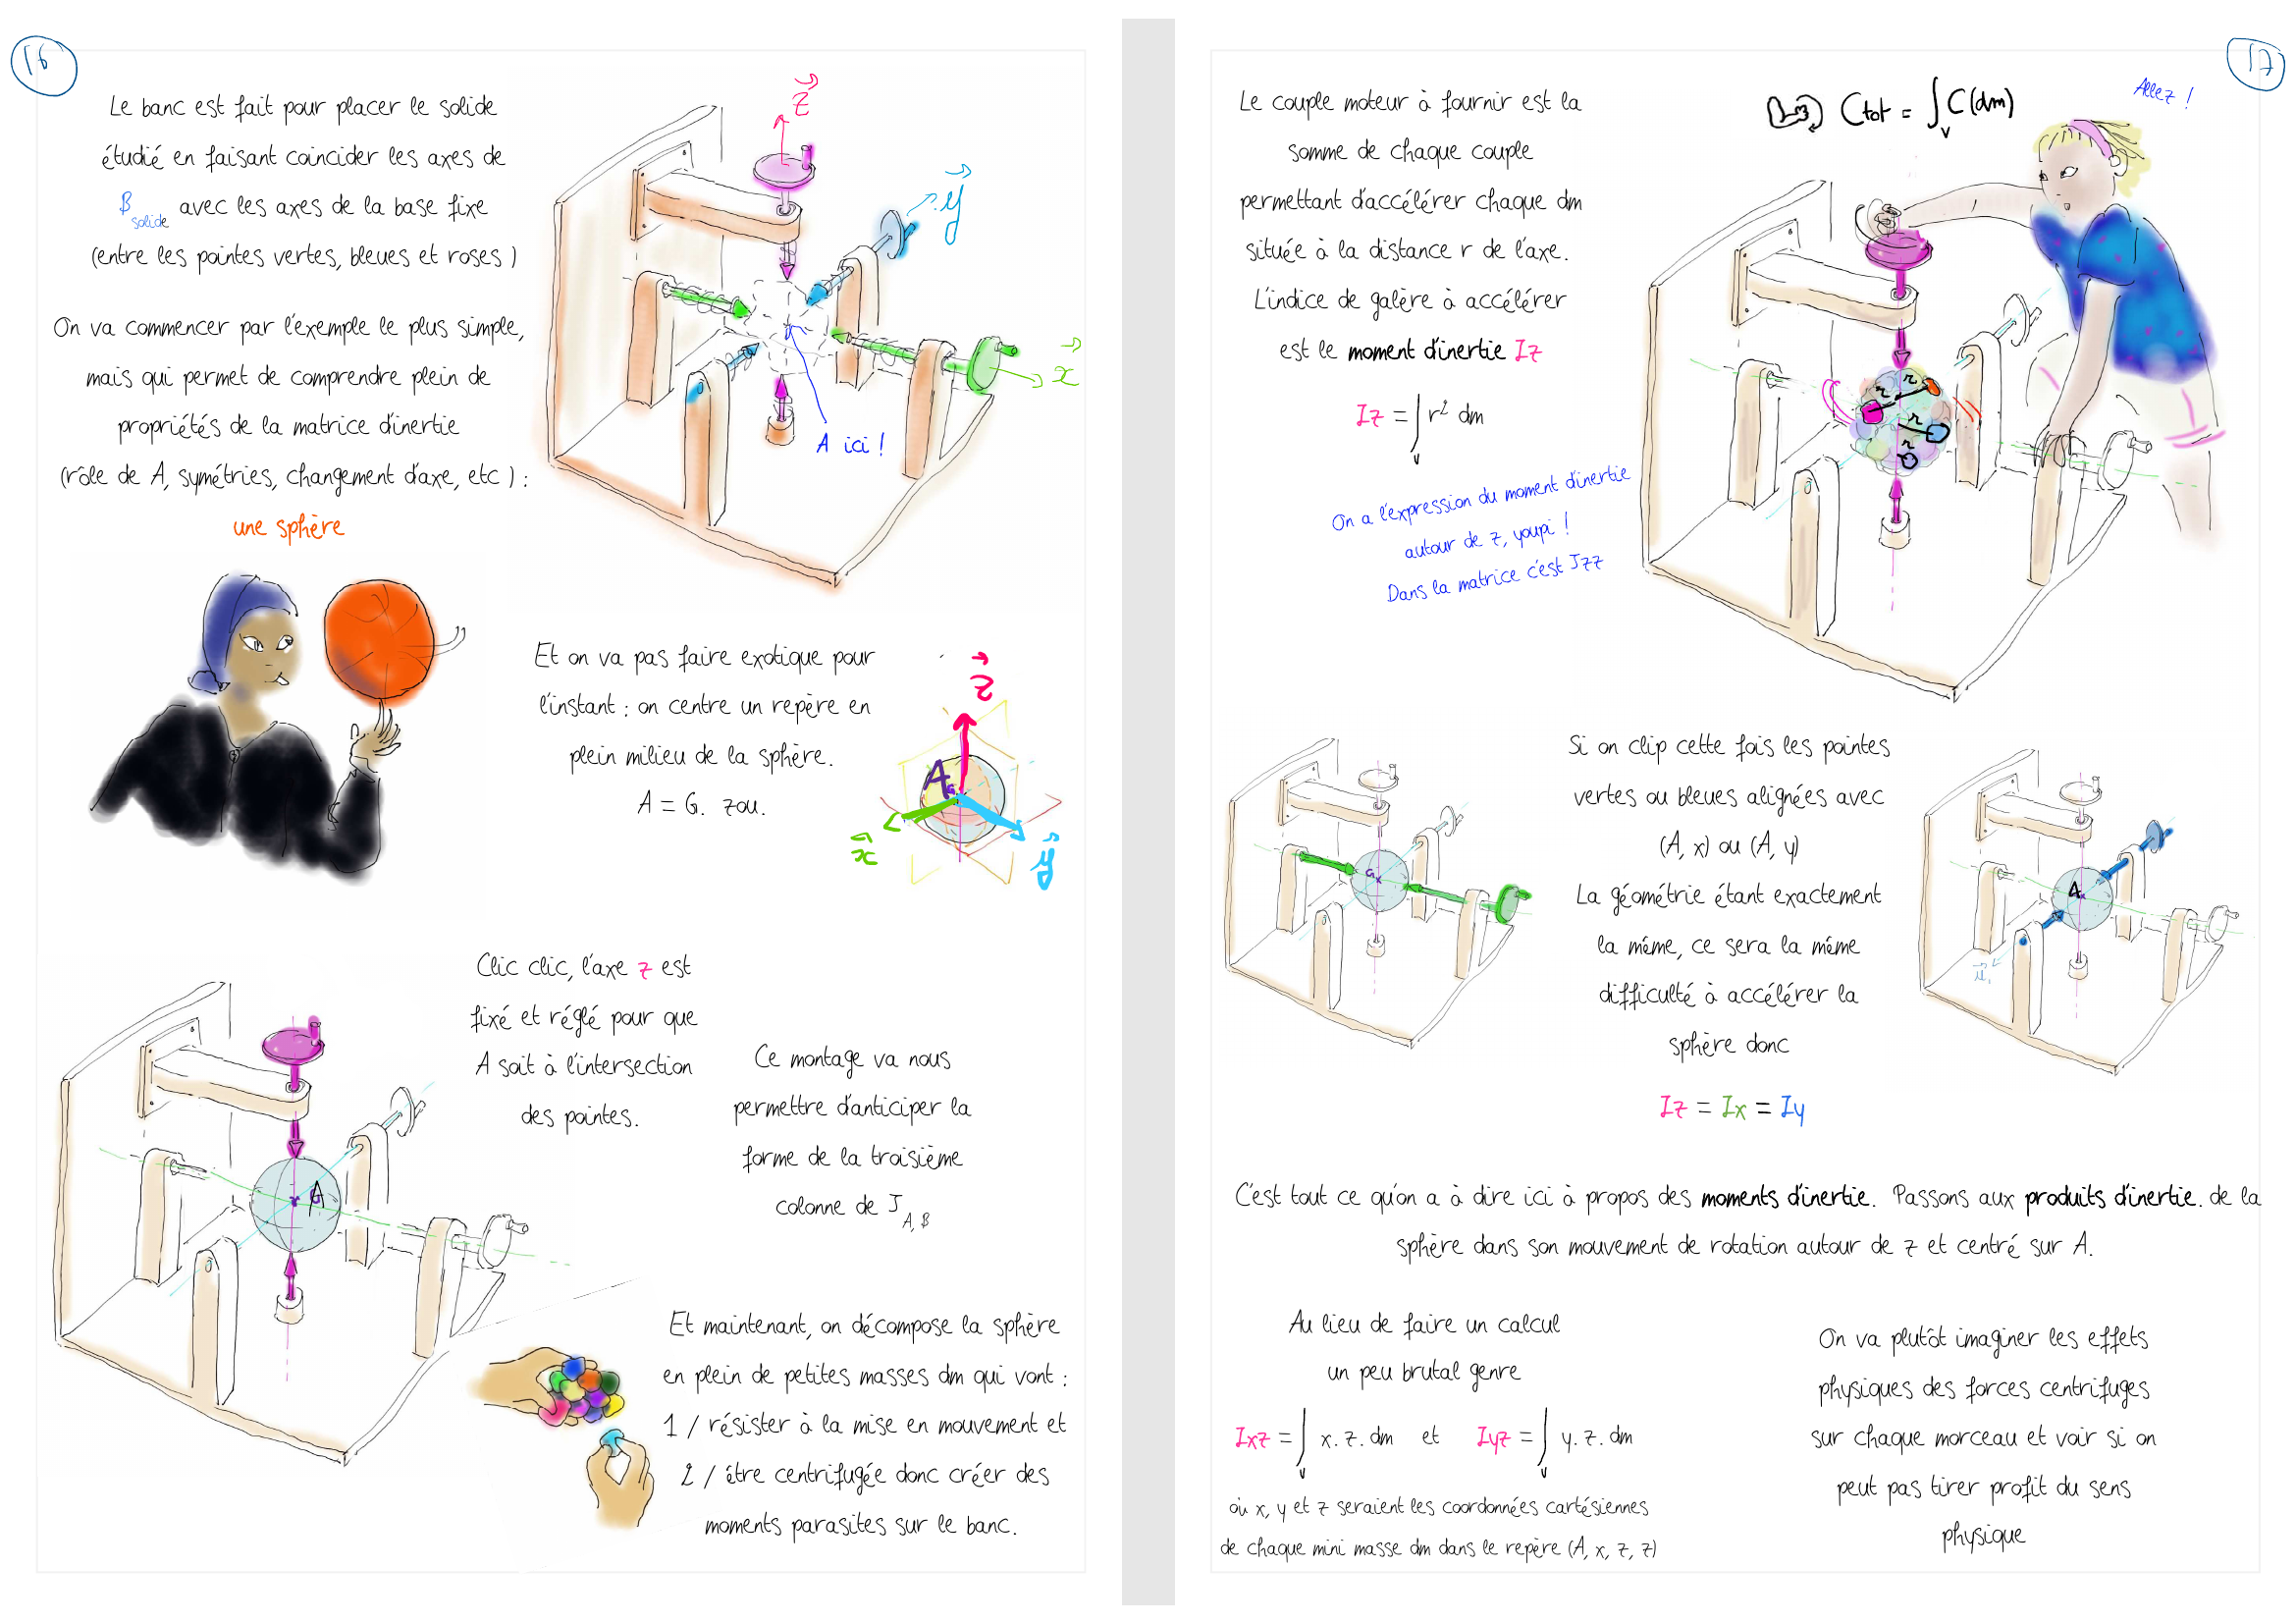 16
Le banc est fait pour placer le solide
étudié en faisant coincider les axes de
B solide avec les axes de la base fixe
(entre les pointes vertes, bleues et roses )
On va commencer par l'exemple le plus simple,
mais qui permet de comprendre plein de
propriétés de la matrice d'inertie
(rôle de A, symétries, changement d'axe, etc ) :
une sphère
z
y
x
A ici !
Et on va pas faire exotique pour
l'instant : on centre un repère en
plein milieu de la sphère.
A = G. zou.
z
A
G
x
y
Clic clic, l'axe z est
fixé et réglé pour que
A soit à l'intersection
des pointes.
G A
Ce montage va nous
permettre d'anticiper la
forme de la troisième
colonne de J A, B
Et maintenant, on décompose la sphère
en plein de petites masses dm qui vont :
1 / résister à la mise en mouvement et
2 / être centrifugée donc créer des
moments parasites sur le banc.
17
Le couple moteur à fournir est la
somme de chaque couple
permettant d'accélérer chaque dm
située à la distance r de l'axe.
L'indice de galère à accélérer
est le moment d'inertie Iz
Iz = ∫v r² dm
On a l'expression du moment d'inertie
autour de z, youpi !
Dans la matrice c'est Jzz
Ctot = ∫v C(dm)
Allez !
r
r
r
r
Si on clip cette fois les pointes
vertes ou bleues alignées avec
(A, x) ou (A, y)
La géométrie étant exactement
la même, ce sera la même
difficulté à accélérer la
sphère donc
Iz = Ix = Iy
G
A
C'est tout ce qu'on a à dire ici à propos des moments d'inertie. Passons aux produits d'inertie. de la
sphère dans son mouvement de rotation autour de z et centré sur A.
Au lieu de faire un calcul
un peu brutal genre
Ixz = ∫v x. z. dm et Iyz = ∫v y. z. dm
où x, y et z seraient les coordonnées cartésiennes
de chaque mini masse dm dans le repère (A, x, z, z)
On va plutôt imaginer les effets
physiques des forces centrifuges
sur chaque morceau et voir si on
peut pas tirer profit du sens
physique